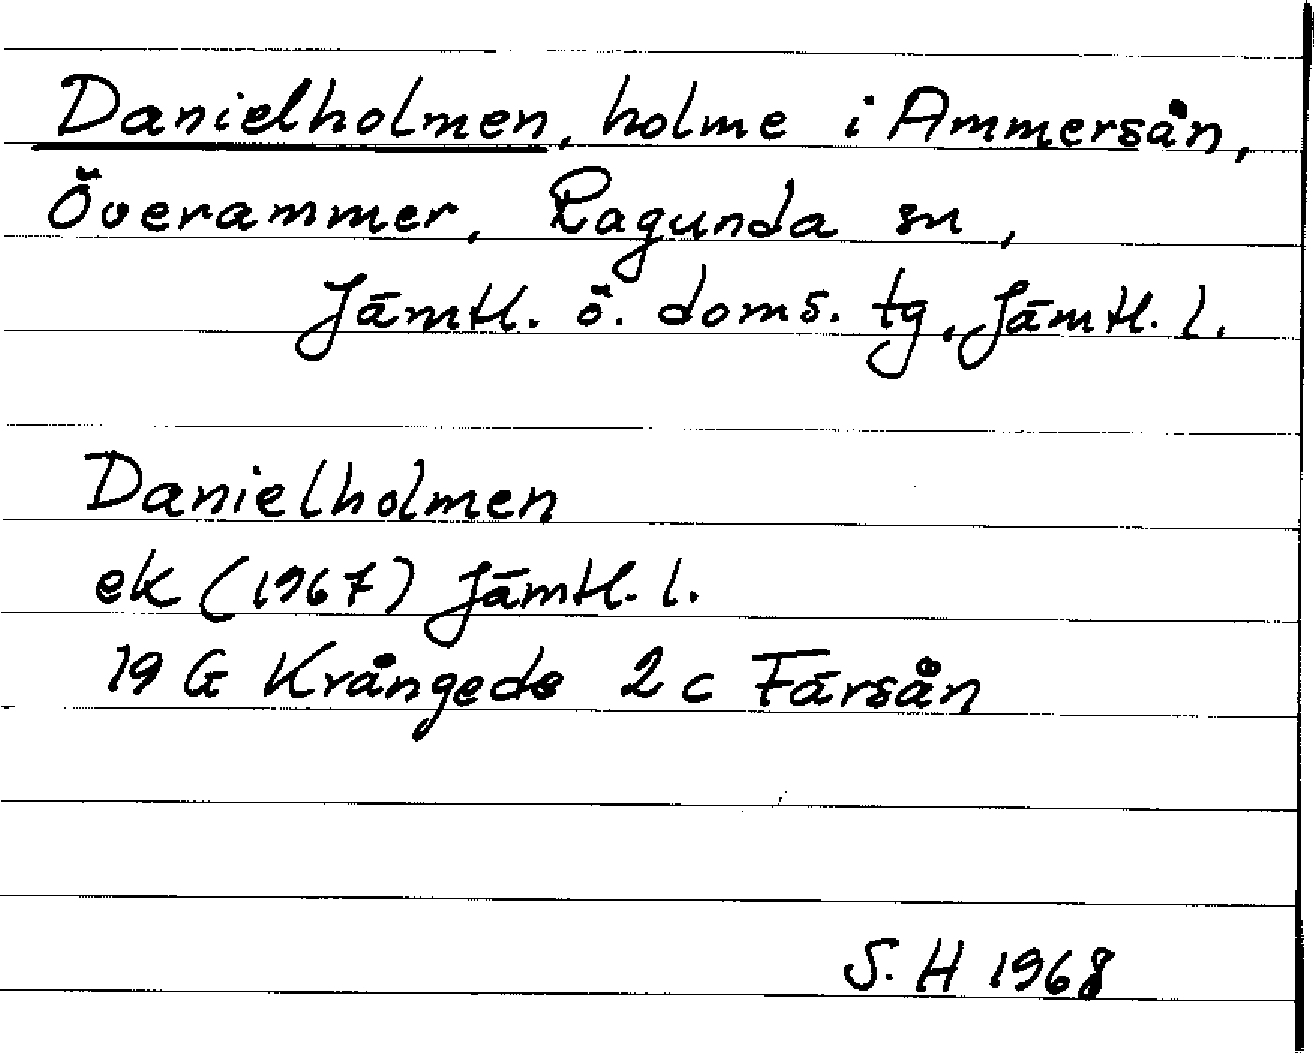 Danielholmen, holme i Ammersån,
Överammer, Ragunda sn,
Jämtl. ö. doms. tg, Jämtl. l.
Danielholmen
ek (1967) Jämtl. l.
19 G Krångede 2 c Färsån
S. H 1968